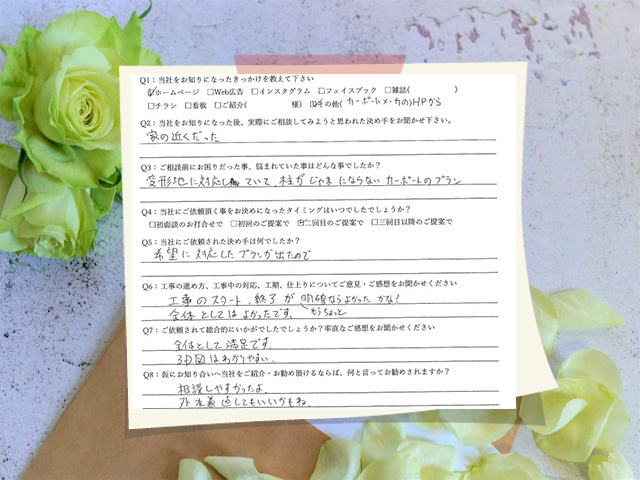 Q1：当社をお知りになったきっかけを教えて下さい
☑ホームページ □Web広告 □インスタグラム □フェイスブック □雑誌( )
□チラシ □看板 □ご紹介( 様) ☑その他( カーポートメーカのHPから
Q2：当社をお知りになった後、実際にご相談してみようと思われた決め手をお聞かせ下さい。
家の近くだった
Q3：ご相談前にお困りだった事、悩まれていた事はどんな事でしたか？
変形地に対応していて、柱がじゃまにならないカーポートのプラン
Q4：当社にご依頼頂く事をお決めになったタイミングはいつでしたでしょうか？
□初面談のお打合せで □初回のご提案で ☑二回目のご提案で □三回目以降のご提案で
Q5：当社にご依頼された決め手は何でしたか？
希望に対応したプランが出たので
Q6：工事の進め方、工事中の対応、工期、仕上りについてご意見・ご感想をお聞かせください
工事のスタート、終了が明確ならよかったかな？
全体としてはよかったです。 もうちょっと
Q7：ご依頼されて総合的にいかがでしたでしょうか？率直なご感想をお聞かせください
全体として満足です。
3D図はわかりやすい。
Q8：仮にお知り合いへ当社をご紹介・お勧め頂けるならば、何と言ってお勧めされますか？
相談しやすかったよ。
外水義 してもいいかもね。